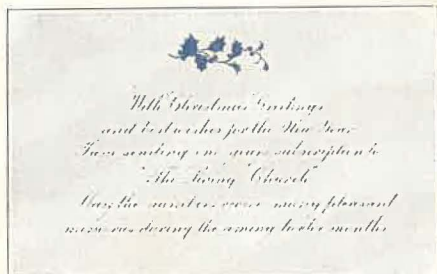 With Christmas Greetings
and best wishes for the New Year
I am sending one year subscription to
"The Living Church"
May the numbers many pleasant
during the coming twelve months